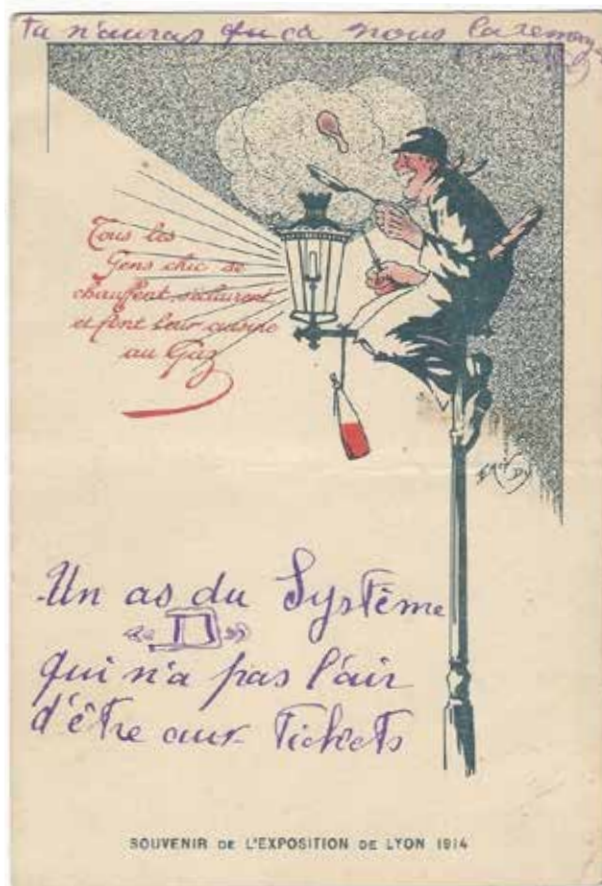 Tu n'auras qu'ça nous la
Tous les
Gens chic se
chauffent s'éclairent
et font leur cuisine
au Gaz
Un as du Système
D
qui n'a pas l'air
d'être aux Tickets
SOUVENIR DE L'EXPOSITION DE LYON 1914